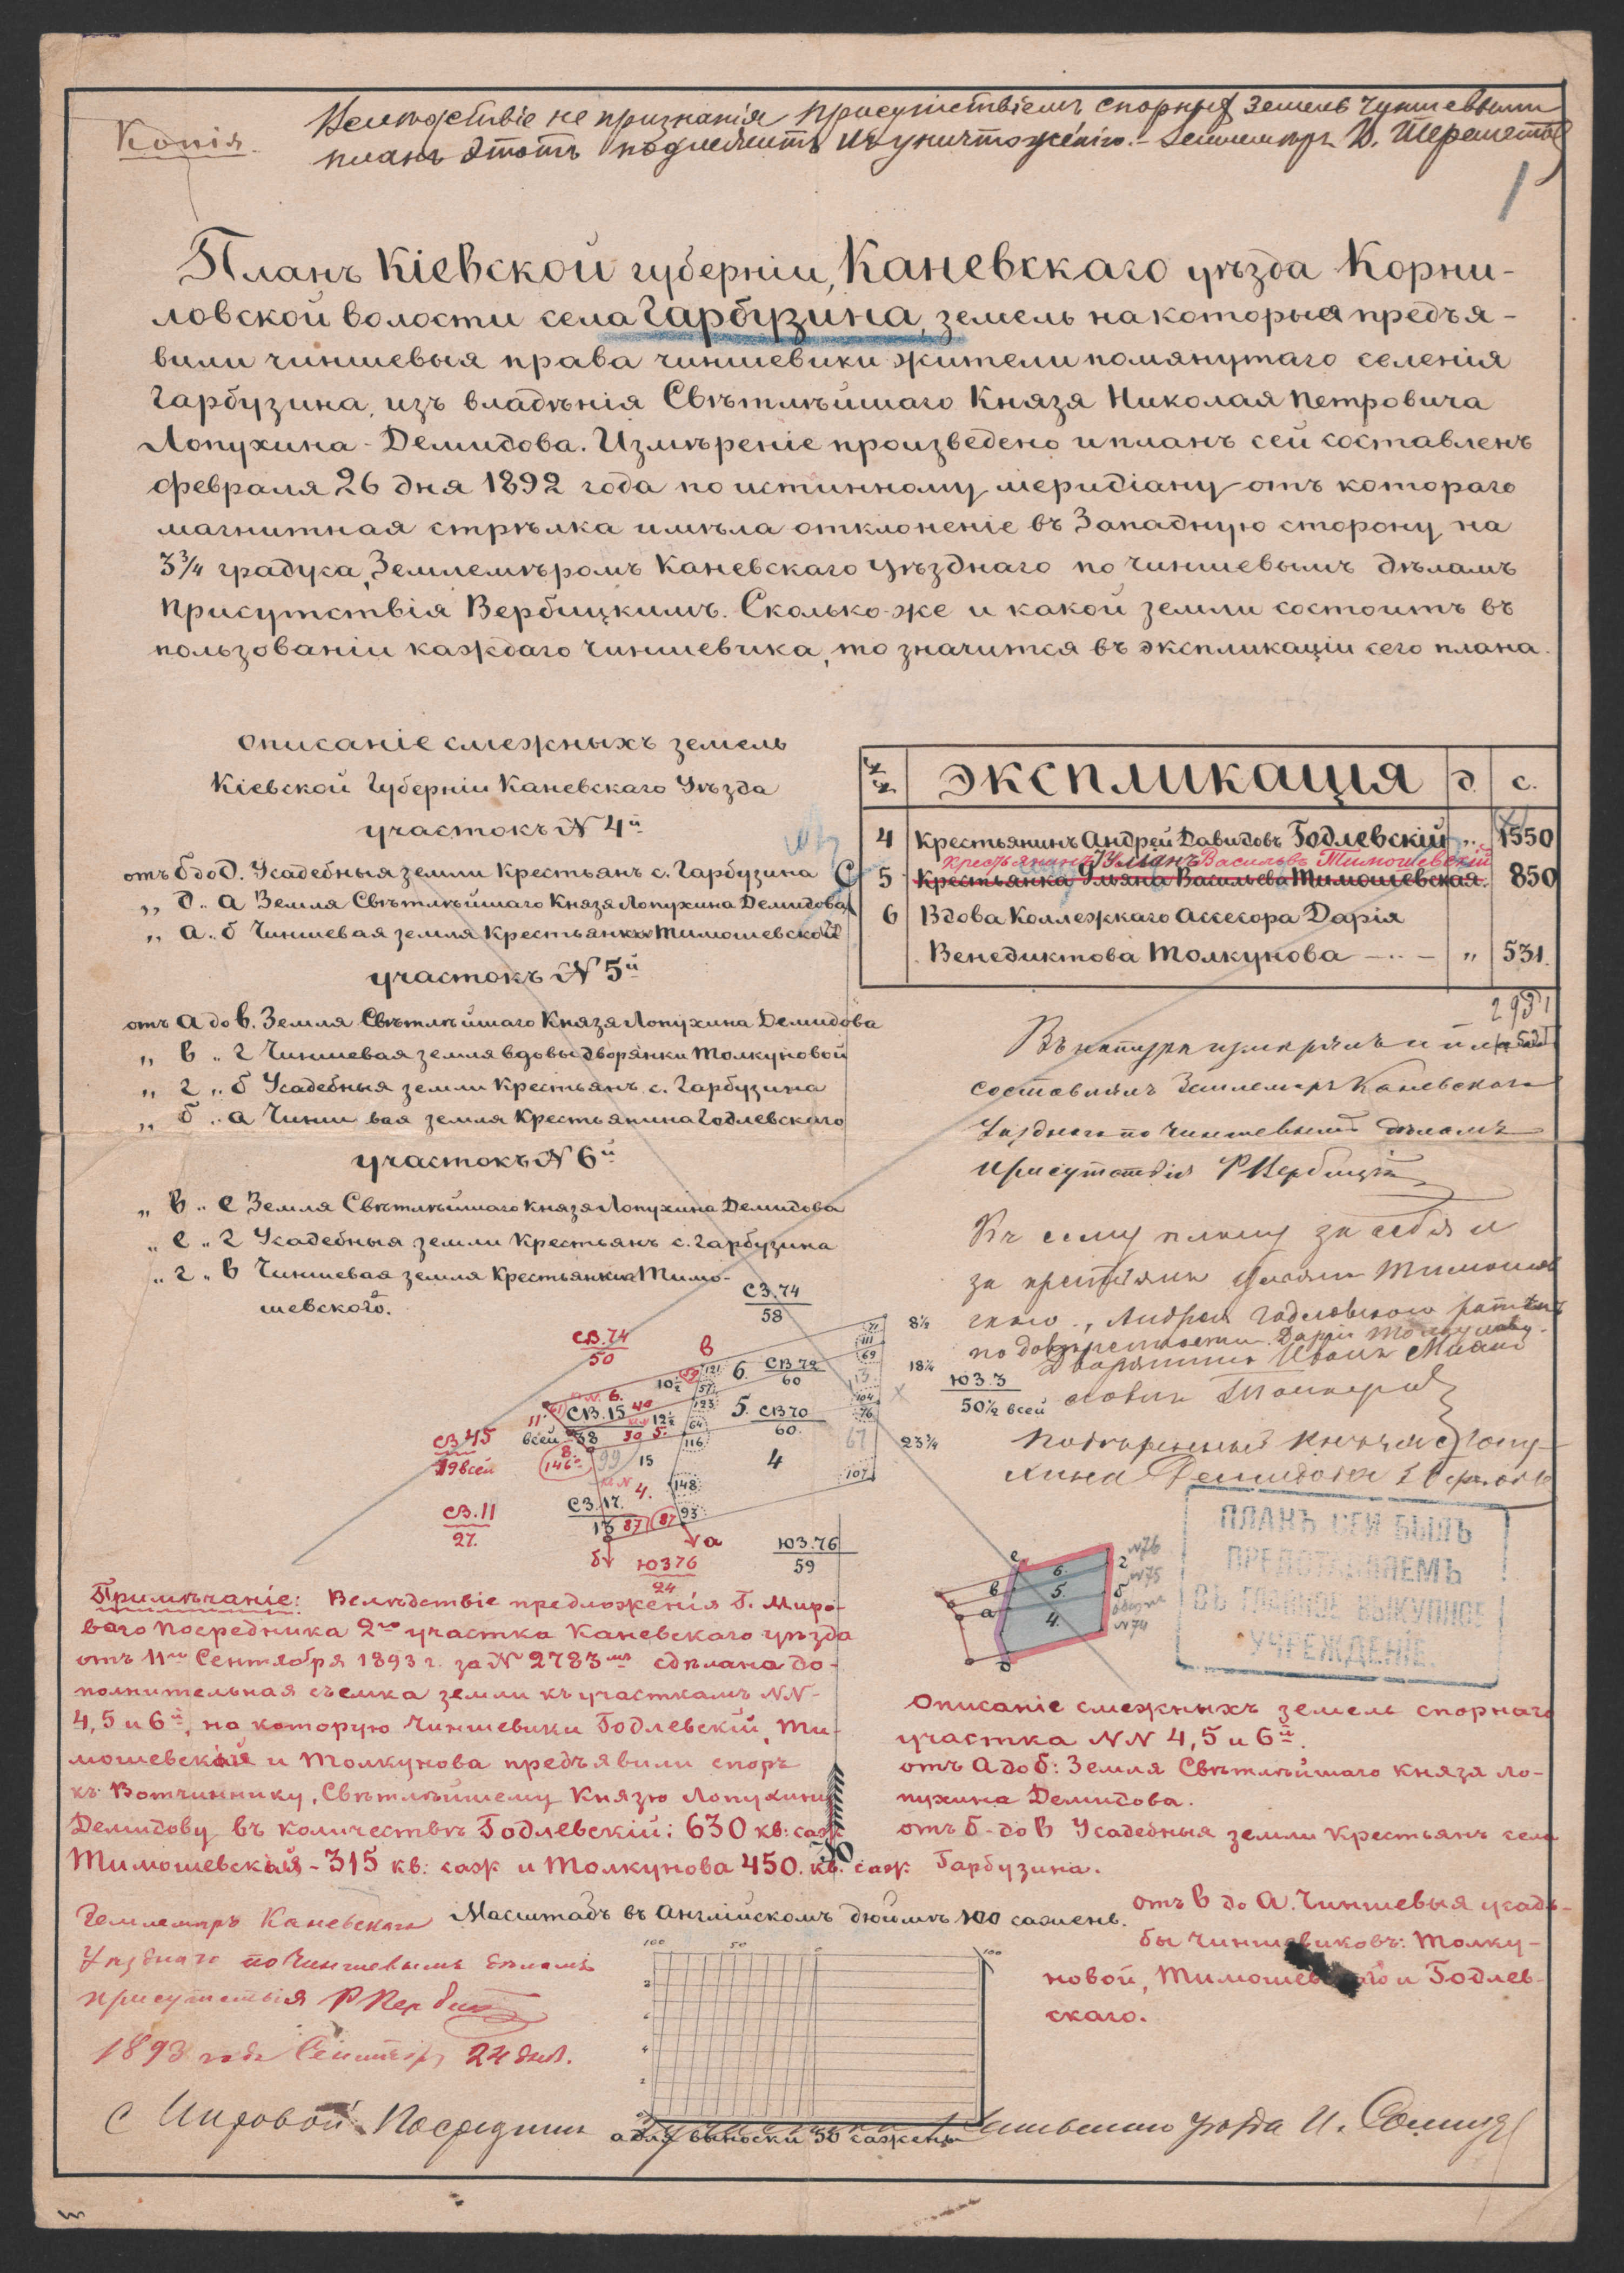 Копія.
не признанія присутствіемъ спорных земель чиншевыми
планъ этотъ подлежитъ къ уничтоженію. - Землемѣръ
1
Планъ Кіевской губерніи, Каневскаго уѣзда Корни-
ловской волости села Гарбузина, земель на которыя предъя-
вили чиншевыя права чиншевики жители помянутаго селенія
Гарбузина, изъ владѣнія Свѣтлѣйшаго Князя Николая Петровича
Лопухина-Демидова. Измѣреніе произведено и планъ сей составленъ
февраля 26 дня 1892 года по истинному меридіану отъ котораго
магнитная стрѣлка имѣла отклоненіе въ Западную сторону на
3 3/4 градуса, Землемѣромъ Каневскаго Уѣзднаго по чиншевымъ дѣламъ
Присутствія Вербицкимъ. Сколько-же и какой земли состоитъ въ
пользованіи каждаго чиншевика, то значится въ экспликаціи сего плана.
Описаніе смежныхъ земель
Кіевской Губерніи Каневскаго Уѣзда
участокъ N 4й
отъ б до д. Усадебныя земли Крестьянъ с. Гарбузина
„ д „ а Земля Свѣтлѣйшаго Князя Лопухина Демидова
„ а „ б Чиншевая земля Крестьянки Тимошевской
участокъ N 5й
отъ а до в. Земля Свѣтлѣйшаго Князя Лопухина Демидова
„ в „ г Чиншевая земля вдовы дворянки Толкуновой
„ г „ б Усадебныя земли Крестьянъ с. Гарбузина
„ б „ а Чинш вая земля Крестьянина Годлевскаго
участокъ N 6й
„ в „ е Земля Свѣтлѣйшаго Князя Лопухина Демидова
„ е „ г Усадебныя земли Крестьянъ с. Гарбузина
„ г „ в Чиншевая земля Крестьянина Тимо-
шевского.
экспликація д. с.
4 Крестьянинъ Андрей Давидовъ Годлевскій „ 1550
Крестьянинъ Ульянъ Васильевъ Тимошевскій
5 Крестьянка Ульяна Васильева Тимошевская. 850
6 Вдова Коллежкаго Ассесора Дарія
Венедиктова Толкунова - „ 531.
2931
Въ натурѣ измѣрялъ и планъ
составлялъ Землемѣръ Каневскаго
Уѣзднаго по чиншевымъ дѣламъ
присутствія Р Вербицкій
Къ сему плану за себя и
за крестьянъ Тимошев
скаго, Андрея Годлевскаго
по довѣренности Даріи Толкуновой
Дворянинъ Иванъ
Повѣренный Князя Лопу-
хина Демидова
СЗ.74
58
СВ.74
50
в
8½
71
111
69
18¼
6. СВ 72
60
10½
59
121
57
123
13
ЮЗ.3
50½ всей
N 6.
61
11
СВ.15
40
12½
30 5.
всей 38
64
116
5. СВ 70
60.
104
76
67
23¾
СВ 45
19 всей
8.
146
99
15
4
107
N 4.
148
СЗ.17.
13
87
87
93
СВ.11
27.
а
б
ЮЗ 76
24
ЮЗ.76
59
е
в
а
д
6.
5.
4.
г
б
N76
N75
N74
ПЛАНЪ СЕЙ БЫЛЪ
ПРЕДСТАВЛЯЕМЪ
ВЪ ГЛАВНОЕ ВЫКУПНОЕ
УЧРЕЖДЕНІЕ.
Примѣчаніе: Вслѣдствіе предложенія Г. Миро-
ваго Посредника 2го участка Каневскаго уѣзда
отъ 11го Сентября 1893 г. за N 2783мъ сдѣлана до-
полнительная съемка земли къ участкамъ NN-
4, 5 и 6й, на которую Чиншевики Годлевскій, Ти-
мошевскій и Толкунова предъявили споръ
къ Вотчиннику, Свѣтлѣйшему Князю Лопухину
Демидову въ количествѣ Годлевскій: 630 кв: саж
Тимошевскій - 315 кв: саж и Толкунова 450. кв. саж.
Описаніе смежныхъ земель спорнаго
участка NN 4, 5 и 6й.
отъ А до б: Земля Свѣтлѣйшаго Князя Ло-
пухина Демидова.
отъ б-до в Усадебныя земли крестьянъ села
Гарбузина.
отъ в до А. Чиншевыя усадь-
бы чиншевиковъ: Толку-
новой, Тимошевскаго и Годлев-
скаго.
Землемѣръ Каневскаго
Уѣзднаго по Чиншевымъ дѣламъ
присутствія Р Вербицкій
1893 года Сентября 24 дня.
Масштабъ въ Англійскомъ дюймѣ 100 сажень.
100 50 0 100
2
6
4
2
а для выноски 50 сажень
С Мировой Посредникъ уѣзда И.